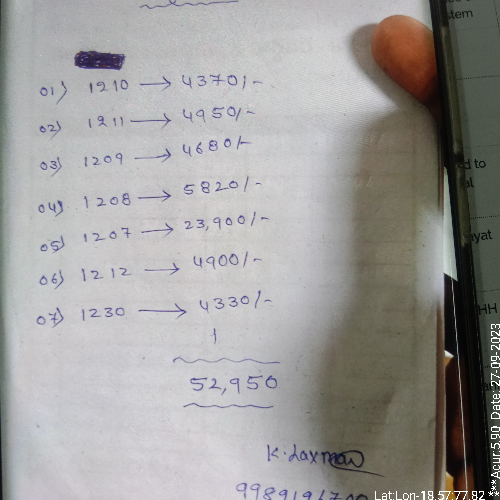 01) 1210 → 4370/-
02) 1211 → 4950/-
03) 1209 → 4680/-
04) 1208 → 5820/-
05) 1207 → 23,900/-
06) 1212 → 4900/-
07) 1230 → 4330/-
52,950
K. Laxman
stem
d to
yat
HH
Date: 27-09-2023
Lat:Lon-18.57.77.82